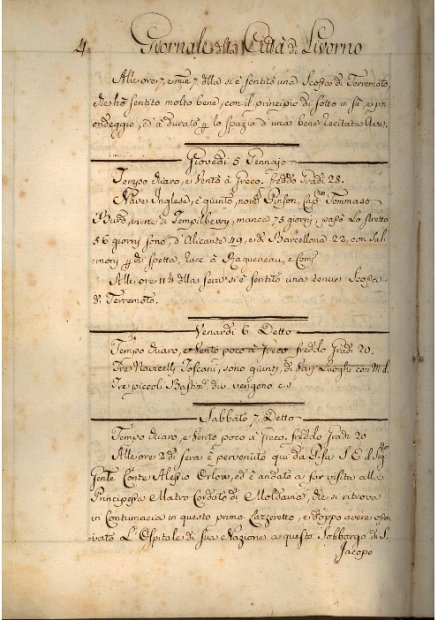 4. Giornale della Città di Livorno
Alle ore 7, e min. 7 della sera s'è sentito una Scossa di Terremoto
che s'è sentito molto bene, con il principio di sotto in sù, e poi
ondeggio, e d'à durato p lo spazio d'una bene recitata Ave.
Giovedì 5 Gennajo
Tempo chiaro, e Vento à Greco, freddo Gradi 23.
Nave Inglese, è giunto, nom. Pinson, Cap.o Tommaso
Bard, viene da manca 75 giorni, passò lo stretto
56 giorni sono, d'Alicante 49, e di Barcellona 22, con Sal-
moni p di spetta, racc. à Raqueneau, e Comp.
Alle ore 11 ½ della sera si è sentito una tenue Scossa
di Terremoto.
Venardì 6 Detto
Tempo chiaro, e Vento poco à Greco freddo Gradi 20.
Tre Navicelli Toscani, sono giunti, di varj Luoghi con M.d.
Tre piccoli Bastim.di div. vengono c.s.
Sabbato 7 Detto
Tempo chiaro, e Vento poco à Greco, freddo Gradi 20
Alle ore 2 di sera è pervenuto qui da Pisa S. E. il Sig.
Gente Conte Alessio Orlow, ed è andato a far visita alla
Principessa Mauro Cordato di Moldavia, che si ritrova
in Contumacia in questo primo Lazzeretto, e doppo avere osser
vato L'Ospitale di sua Nazione a questo Sobborgo di S.
Jacopo